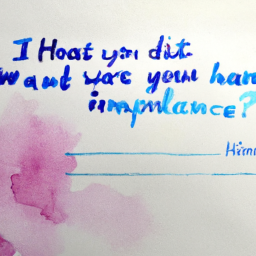 I Hoat you dit
w and yare your han
impulance?
Him